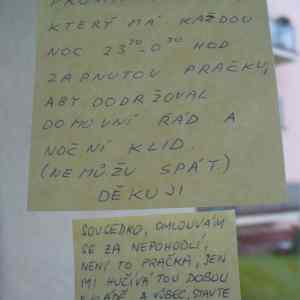 KTERÝ MÁ KAŽDOU
NOC 23³⁰-0³⁰ HOD
ZAPNUTOU PRAČKU,
ABY DODRŽOVAL
DOMOVNÍ ŘÁD A
NOČNÍ KLID.
(NEMŮŽU SPÁT.)
DĚKUJI
SOUSEDKO, OMLOUVÁM
SE ZA NEPOHODLÍ,
NENÍ TO PRAČKA, JEN
MI HUČÍVÁ TOU DOBOU
A VŮBEC, STAVTE